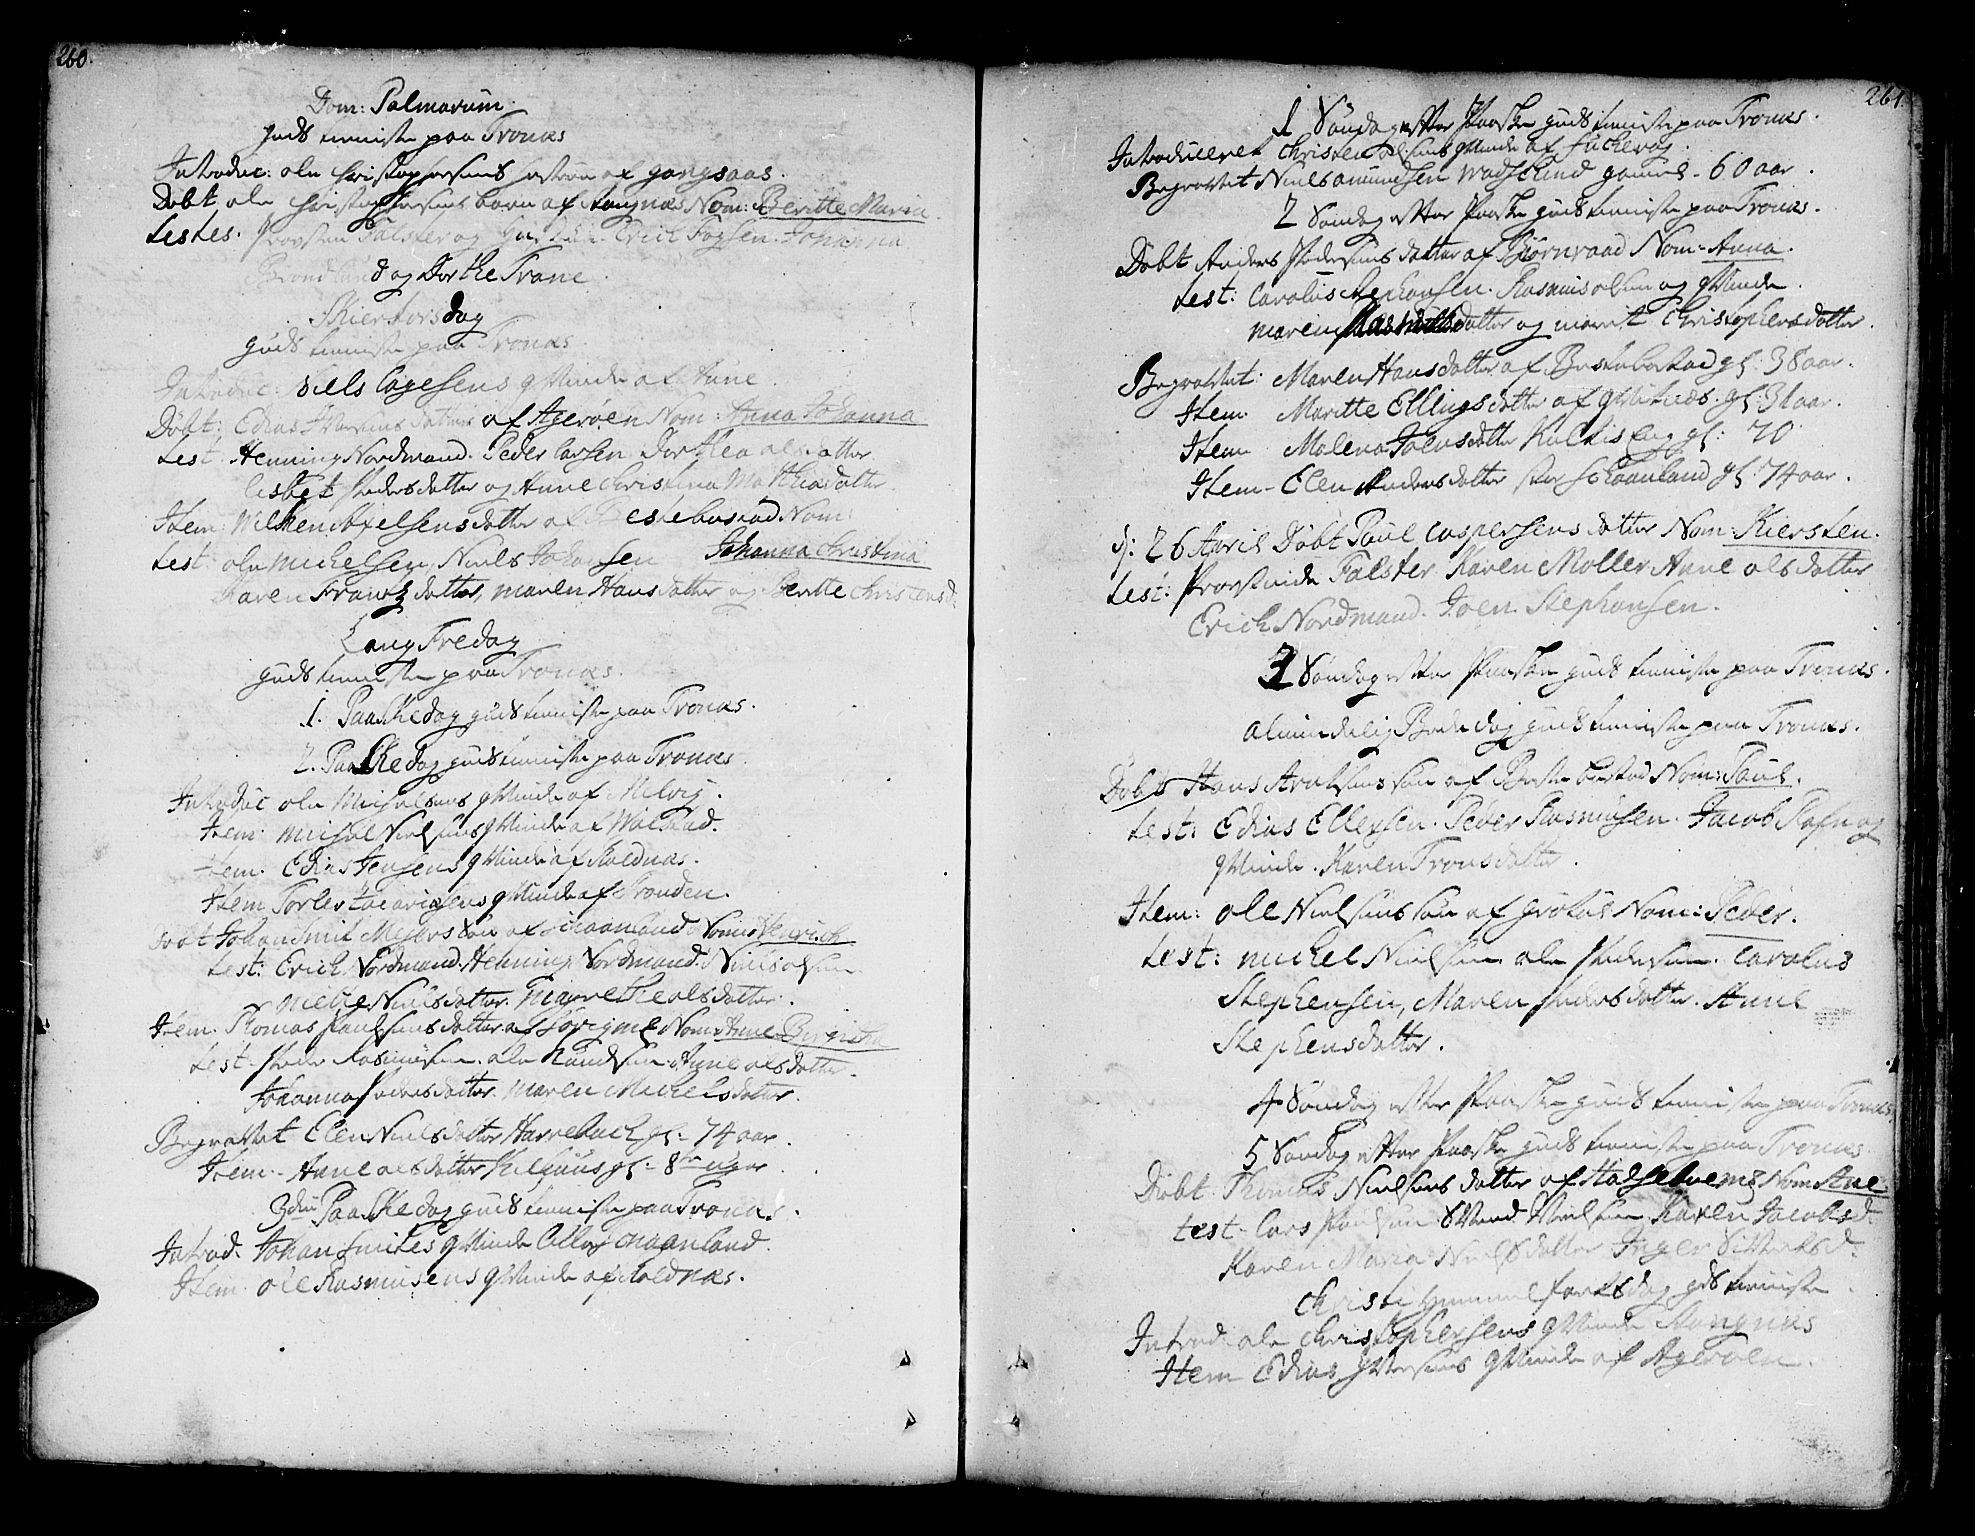 260.
Dom: Palmarum.
Guds tieniste paa Tronæs
Introduc: ole Christophersens hustrue af gangsaas.
Døbt ole Christophersens barn af Stangnæs Nom: Beritte Maria.
testes. Provsten Falster og Hustrue. Erich Fogsen. Johanna
Brondlund og Dorthe Trane
Skiertorsdag
Guds tieniste paa Tronæs.
Introduc: Niels Lagesens qvinde af Aune
Døbt: Edias Iversens datter af Agerøen Nom: Anna Johanna
test: Henning Nordmand. Peder Larsen. Dorthea olsdatter
Lisbet Pedersdatter og Anne Christina Mathiædatter.
Item: Wilken Axelsens datter af Beskebostad Nom:
test: ole Michelsen, Niels Johansen Johanna Christina
Karen Frantzdatter, Maren Hansdatter og Beritte Christensd:
Lang Fredag
Guds tieniste paa Tronæs.
1. Paaskedag guds tieniste paa Tronæs.
2. Paaskedag guds tieniste paa Tronæs
Introduc ole Michelsens qvinde af Melvig.
Item: Michel Nielsens qvinde af
Item. Edias Jensens qvinde af Koldnæs.
Item Torles Zacarisens qvinde af Stranden.
Døbt Johan Smit Meiers Søn af Schaanland Nom: Henrich
test: Erich Nordmand. Henning Nordmand. Niels olsen
Mette Nielsdatter. Magrethe olsdatter.
Item. Thomas Paulsens datter af Nom: Anne Birgitha
test. Peder Rasmusen. ole Knudsen. Anne olsdatter.
Johanna Pedersdatter. Maren Michelsdatter.
Begravet Elen Nielsdatter Harrebach gl: 74 aar.
Item. Anne olsdatter Kilhuus gl: 8te uger
3die Paaskedag guds tieniste paa Tronæs.
Introd. Johan Smites qvinde Schaanland.
Item. ole Rasmusens qvinde af Koldnæs.
261.
1 Søndag efter Paaske guds tieniste paa Tronæs.
Introduceret Christen olsens qvinde af
Begravet Niels Amundsen Wadsund gamel. 60 aar.
2 Søndag efter Paaske guds tieniste paa Tronæs.
Døbt Anders Pedersens datter af Biørnraad Nom. Anna.
test: Carolus Stephansen. Rasmus olsen og qvinde.
Maren Rasmusdatter og Marit Christophersdatter.
Begravet: Maren Hansdatter af Beskebostad gl: 38 aar.
Item Maritte Ellingsdatter af gl: 31 aar.
Item Malena Joensdatter gl: 70
Item. Elen Andersdatter Stor Schaanland gl: 74 aar.
d: 26 April Døbt Paul Caspersens datter Nom: Kiersten.
test: Provstinde Falster Karen Moller Anne olsdatter
Erich Nordmand. Joen Stephansen.
3 Søndag efter Paaske guds tieniste paa Tronæs.
almindelig Bededag guds tieniste paa Tronæs.
Døbt Hans Arentsens søn af Beskebostad Nom: Paul.
test: Edias Ellersen. Peder Rasmusen. Jacob Rafn og
qvinde. Karen Tronsdatter.
Item: ole Nielsens søn af Grøtaas Nom: Peder.
test: Michel Nielsen ole Pedersen. Carolus
Stephensen, Maren Pedersdatter. Anne
Stephensdatter.
4 Søndag efter Paaske guds tieniste paa Tronæs
5 Søndag efter Paaske guds tieniste paa Tronæs
Døbt. Thomas Nielsens datter af Nom Ane
test. Lars Paulsen Svend Nielsen Karen Jacobsd.
Karen Maria Nielsdatter Inger Siverksd.
Christi Himmelfartsdag gds tieniste
Introd: ole Christophersens qvinde Stangnæs
Item Edias Iversens qvinde af Agerøen.